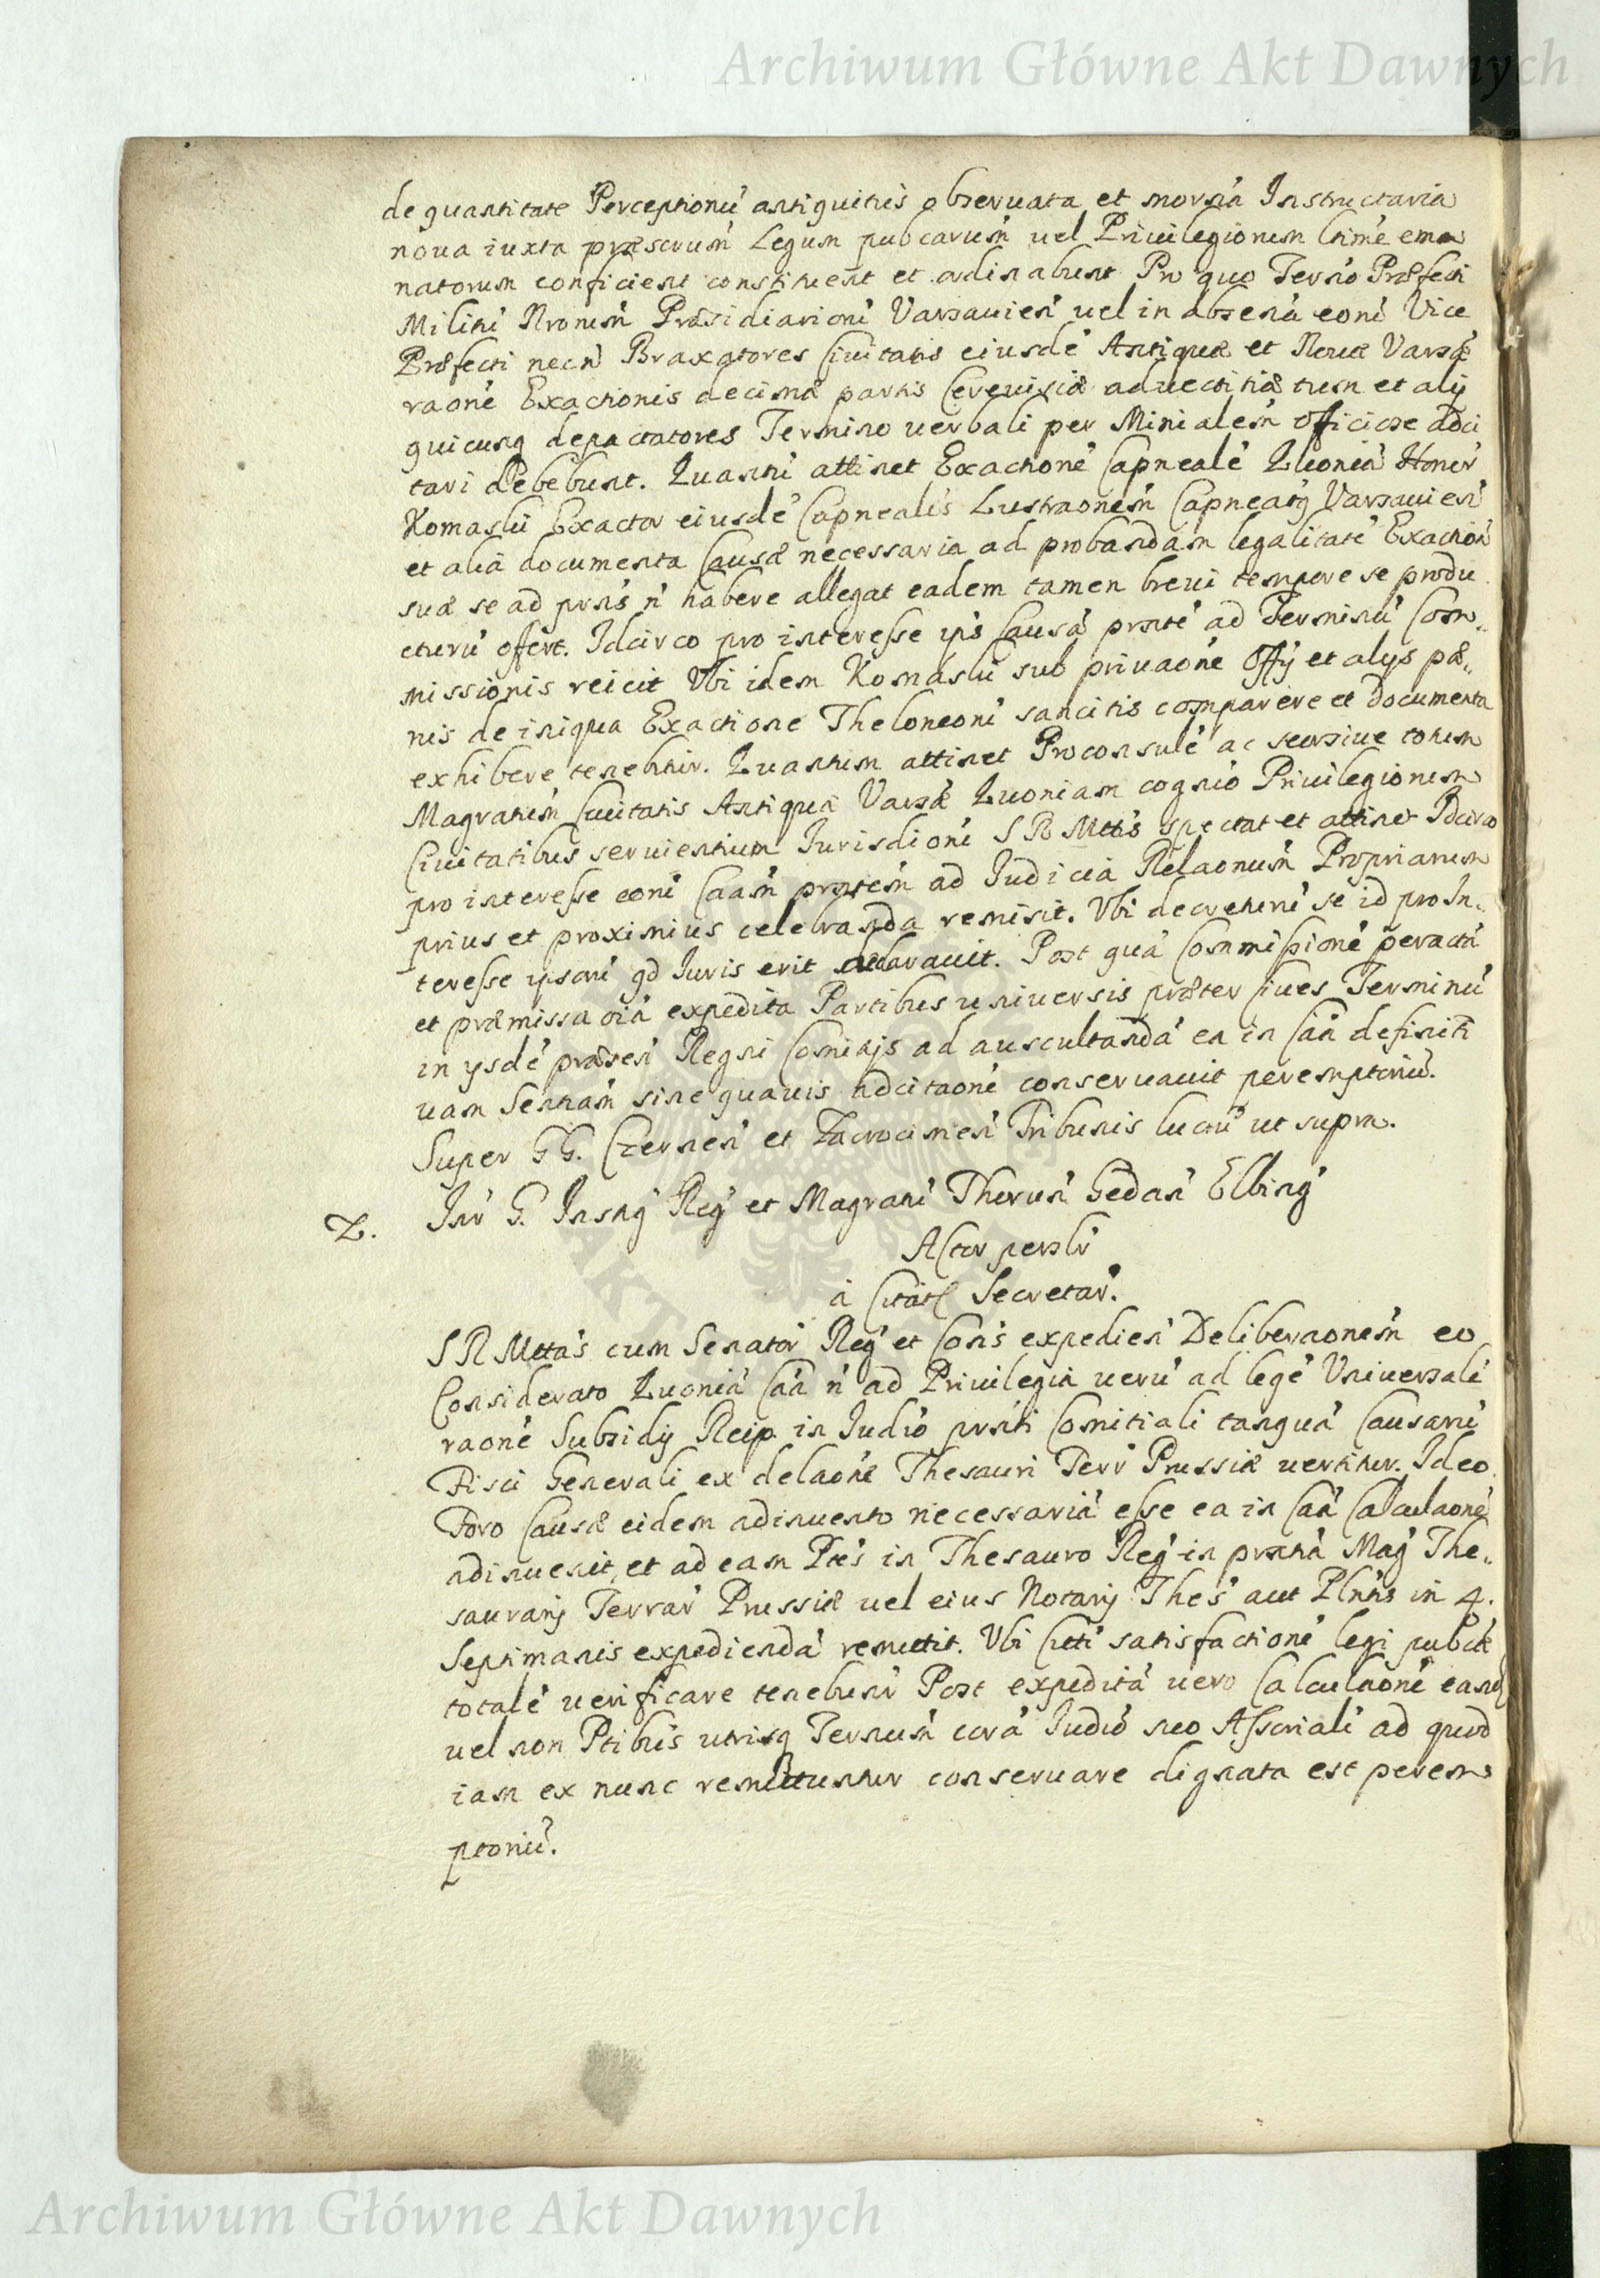 Archiwum Główne Akt Dawnych
de quantitate Perceptionũ antiquitus observata et Instructaria
noua iuxta præscrum Legum pubcarum uel Priuilegiorum ltime ema
natorum conficient constituent et ordinabunt Pro quo Termo Præfecti
Militũ Nrorum Præsidiariorũ Varsauien uel in absena eorũ Vice
Præfecti necn Braxatores Ciuitatis eiusdẽ Antiquæ et Nouæ Varsæ
raone Exactionis decimæ partis Cereuisiæ aduectitiæ tum et alij
quicunq depactatores Termino uerbali per Minialem officiose adci
tari debebunt. Quantũ attinet Exactionẽ Capnealẽ Quoniã
Komaski Exactor eiusdẽ Capnealis Lustraonem Capnearũ Varsauien
et alia documenta Causæ necessaria ad probandam legalitatẽ Exaction
suæ se ad prns n habere allegat eadem tamen breui tempore se produ
cturũ offert. Idcirco pro interesse ips Causã prntẽ ad Terminũ Com-
missionis reicit Vbi idem Komaski sub priuaone Offij et alijs pæ-
nis de iniqua Exactione Theloneorũ sancitis comparere et documenta
exhibere tenebitur. Quantum attinet Proconsulẽ ac totum
Magratum Ciuitatis Antiquæ Varsæ Quoniam cognio Priuilegiorum
Ciuitatibus seruientium Iurisdioni S R Mttis spectat et attinet Idcirco
pro interesse eorũ Caam prntem ad Iudicia Relaonum Propriarum
prius et proximius celebranda remisit. Vbi decreturũ se id pro In-
teresse ipsorũ qd Iuris erit declarauit. Post quã Commissionẽ peractã
et præmissa oia expedita Partibus uniuersis præter Ciues Terminũ
in ijsdẽ præsen Regni Comitijs ad auscultandã ea in Caa definiti
uam Sentiam sine quauis adcitaone conseruauit peremptoriũ.
Super GG. Czernen et Zacrocimen Tribunis lucrũ ut supra.
2. Intr G. Instig Reg et Magratũ Thorun Gedan Elbing
Actor perslr
a Citat Secretar.
S R Mttas cum Senator Reg et Consis expedien Deliberaonem eo
Considerato Quoniã Caa n ad Priuilegia uerũ ad legẽ Vniuersalẽ
raone Subsidij Reip in Iudio prnti Comitiali tanquã Causarũ
Fisci Generali ex delaone Thesauri Terr Prussiæ uertitur. Ideo
Foro Causæ eidem adinuento necessariã esse ea in Caa Calculaone
adinuenit, et ad eam Ptes in Thesauro Reg in prntia Mag The-
saurarij Terrar Prussiæ uel eius Notarij Thes aut Plntis in 4.
Septimanis expediendã remittit. Vbi Citti satisfactionẽ legi pubcæ
totalẽ uerificare tenebunr Post expeditã uero Calculaonẽ eand
uel non Ptibus utrisq Ternum corã Iudio suo Assoriali ad quod
iam ex nunc remittuntur conseruare dignata est perem-
ptoriũ.
Archiwum Główne Akt Dawnych